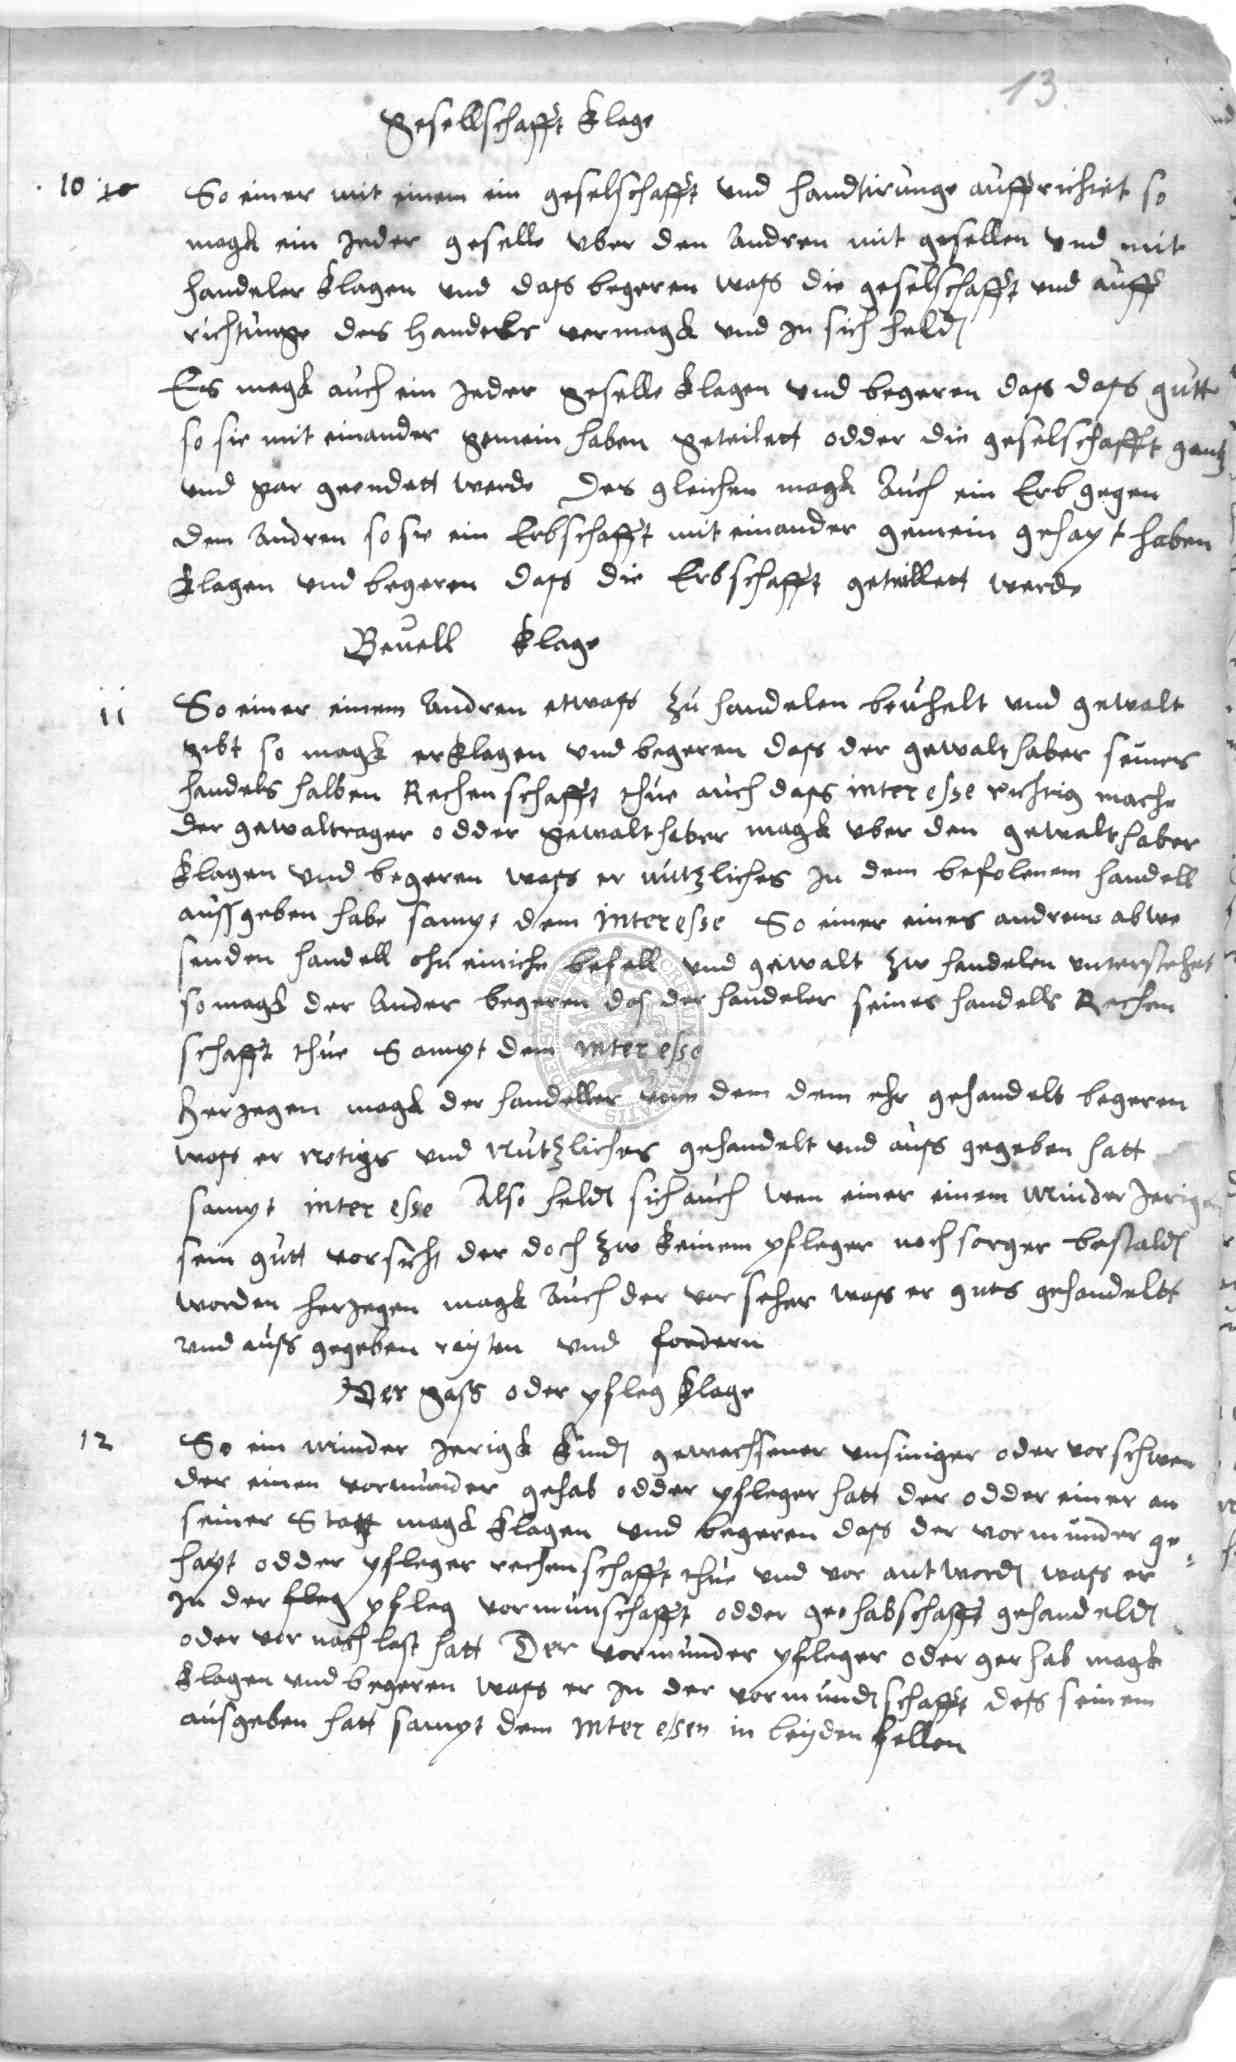 13
Gesellschafft Klage
10 So einer mit einem ein geselschafft und handtirunge auffrichtet so
magk ein Jeder geselle vber den Andren mit gesellen vnd mit
handeler klagen vnd dass begeren wass die geselschafft vnd auff
richtunge des Handels vermagk vnd In sich held
Es magk auch ein Jeder geselle klagen vnd begeren dass dass gutt
so sie mit einander gemein haben geteilett odder die geselschafft gantz
vnd gar geendett werde Des gleichen magk Auch ein Erb gegen
den Andren so sie ein Erbschafft mit einander gemein gehapt haben
klagen vnd begeren dass die Erbschafft geteillett werde
Beuell Klage
11 So einer einem Andren etwass zu handelen beuhelt vnd gewalt
gibt so magk er klagen vnd begeren dass der gewalthaber seines
handels halben Rechenschafft thue auch dass interesse richtig mache
der gewaltrager odder gewalthaber magk vber den gewalthaber
klagen vnd begeren wass er nutzliches In dem befolenem handell
aussgeben habe sampt dem Interesse So einer eines andren abwe
senden handell ohn einiche befell vnd gewalt zw handelen unterstehet
so magk der Ander begeren das der handeler seines handells Rechen
schafft thue Sampt dem interesse
Herjegen magk der handeller vonn dem dem ehr gehandelt begeren
wass er notigs vnd Nutzliches gehandelt vnd auss gegeben hatt
sampt interesse Also held sich auch wen einer einem Minder Jerigen
sein gutt vorsicht der doch zw keinem pfleger noch sorger bestald
worden herjegen magk Auch der vorseher wass er guts gehandeltt
vnd auss gegeben rayten vnd fordern
Der gass oder pfleg Klage
12 So ein Minder Jerigk Kind gewachsener vnsiniger oder vorschwen
der einen vormunder gehab odder pfleger hatt der odder einer an
seiner Statt magk klagen vnd begeren dass der vormunder ge=
hapt odder pfleger rechenschafft thue vnd vor antword wass er
In der pfleg vormunschafft odder gerhabschafft gehandeld
oder vor nachlest hatt Der vormunder pfleger oder gerhab magk
klagen vnd begeren wass er In der vormundschafft dess seinem
ausgeben hatt sampt dem Interessen in beyden fellen